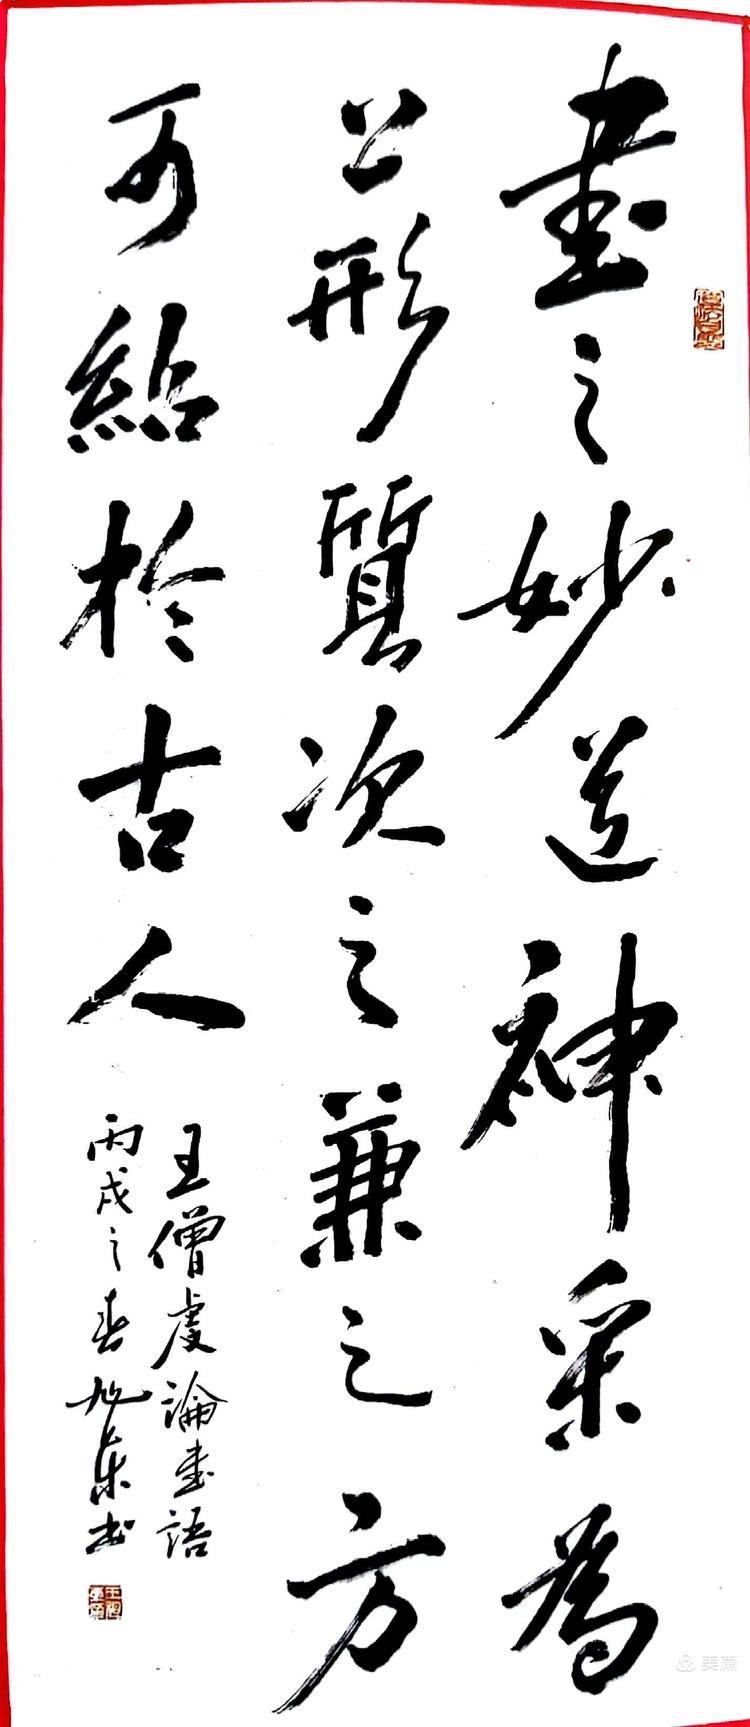 書之妙道神采為
上形質次之兼之方
可紹於古人
王僧虔論書語
丙戌之春旭東书
美篇